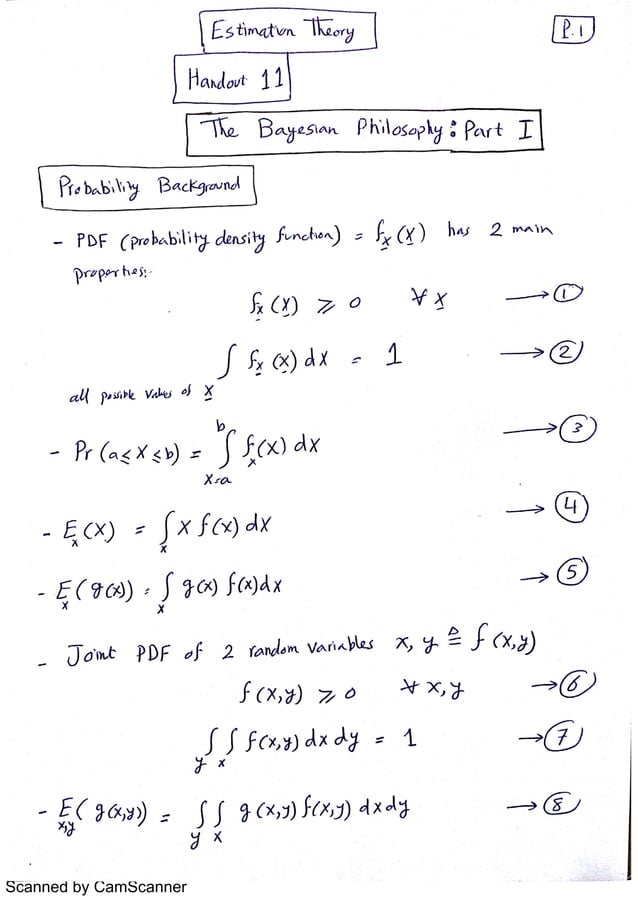 Estimation Theory
P.1
Handout 11
The Bayesian Philosophy : Part I
Probability Background
- PDF (probability density function) = fₓ(x) has 2 main
properties:-
fₓ(x) ⩾ 0 ∀ x → ①
∫ fₓ(x) dx = 1 → ②
all possible values of x
- Pr (a ≤ X ≤ b) = ∫_{x=a}^{b} fₓ(x) dx → ③
- Eₓ(X) = ∫ₓ x f(x) dx → ④
- Eₓ(g(x)) = ∫ₓ g(x) f(x) dx → ⑤
- Joint PDF of 2 random variables x, y ≜ f(x,y)
f(x,y) ⩾ 0 ∀ x,y → ⑥
∫_y ∫_x f(x,y) dx dy = 1 → ⑦
- E_{x,y}( g(x,y)) = ∫_y ∫_x g(x,y) f(x,y) dx dy → ⑧
Scanned by CamScanner